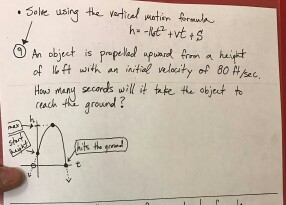 • Solve using the vertical motion formula
h = -16t² + vt + s
9 An object is propelled upward from a height
of 16 ft with an initial velocity of 80 ft/sec.
How many seconds will it take the object to
reach the ground?
h
max
start
height
hits the ground
t